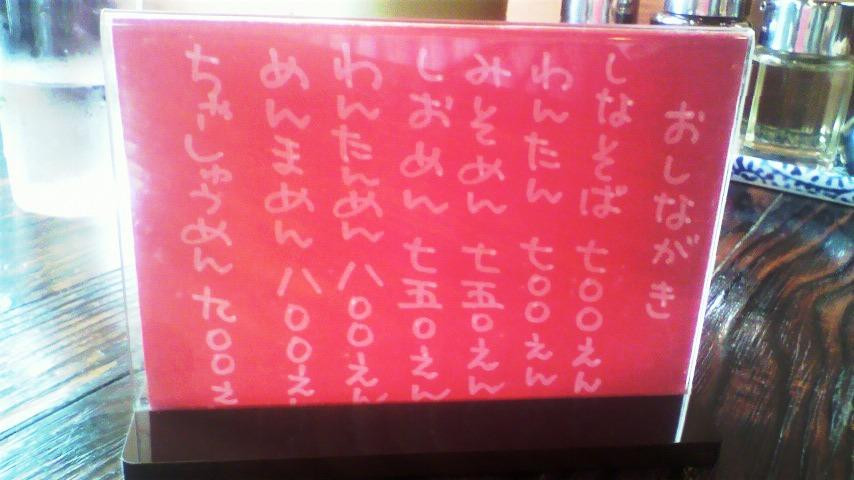 おしながき
しなそば 七〇〇えん
わんたん 七〇〇えん
みそめん 七五〇えん
しおめん 七五〇えん
わんたんめん 八〇〇えん
めんまめん 八〇〇え
ちゃーしゅうめん 九〇〇え